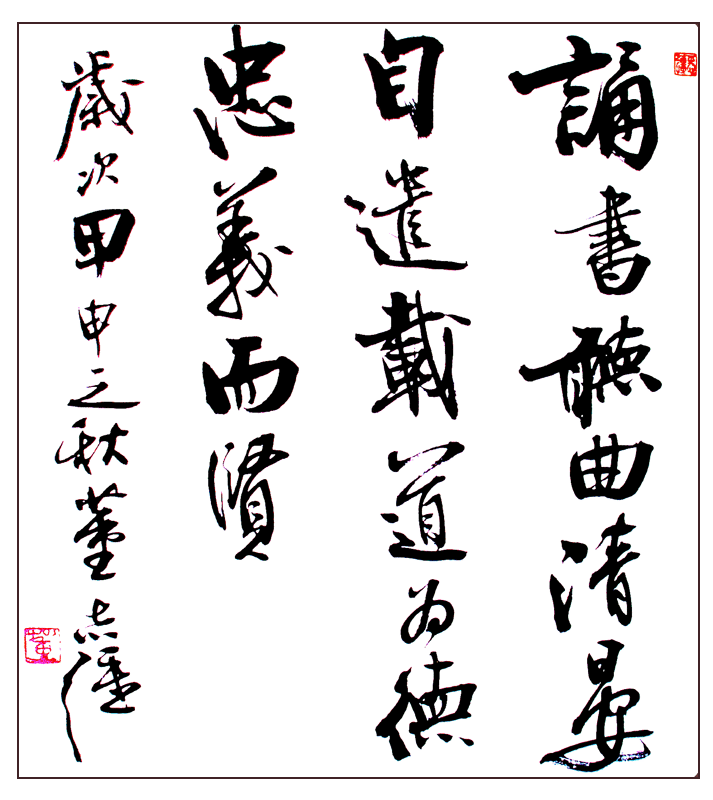 誦書聽曲清晏
自遣載道為德
忠義而賢
歲次甲申之秋董志强